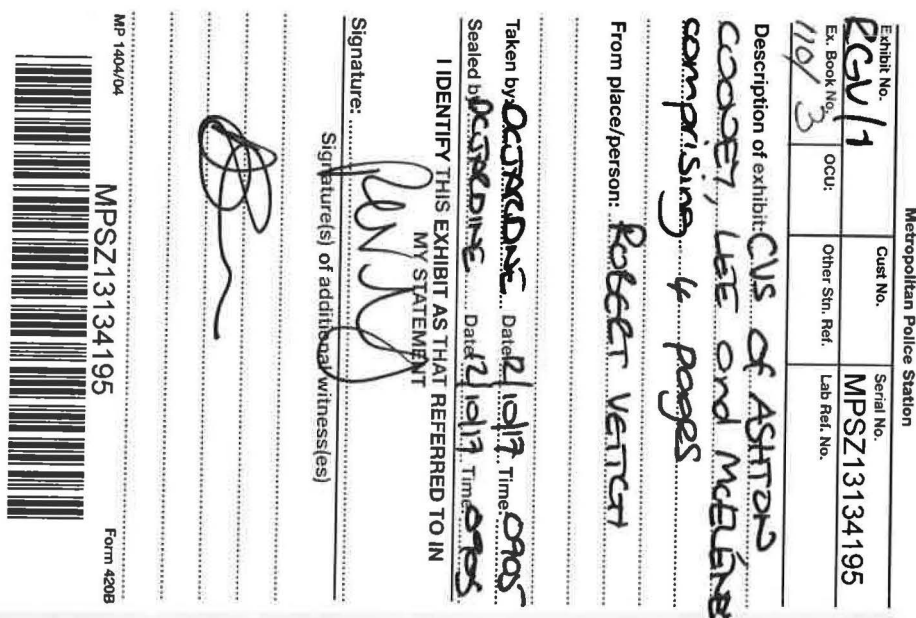 Metropolitan Police Station
Exhibit No. Cust No. Serial No.
RGV/1 MPSZ13134195
Ex. Book No. OCU: Other Stn. Ref. Lab Ref. No.
110/3
Description of exhibit: CVS of ASHTON
LEE and McELENE
comprising 4 pages
From place/person: ROBERT VEITCH
Taken by: DC JARDINE Date 12/10/17 Time: 0905
Sealed by: DC JARDINE Date 12/10/17 Time 0905
I IDENTIFY THIS EXHIBIT AS THAT REFERRED TO IN
MY STATEMENT
Signature:
Signature(s) of additional witness(es)
MP 1404/04 MPSZ13134195 Form 420B